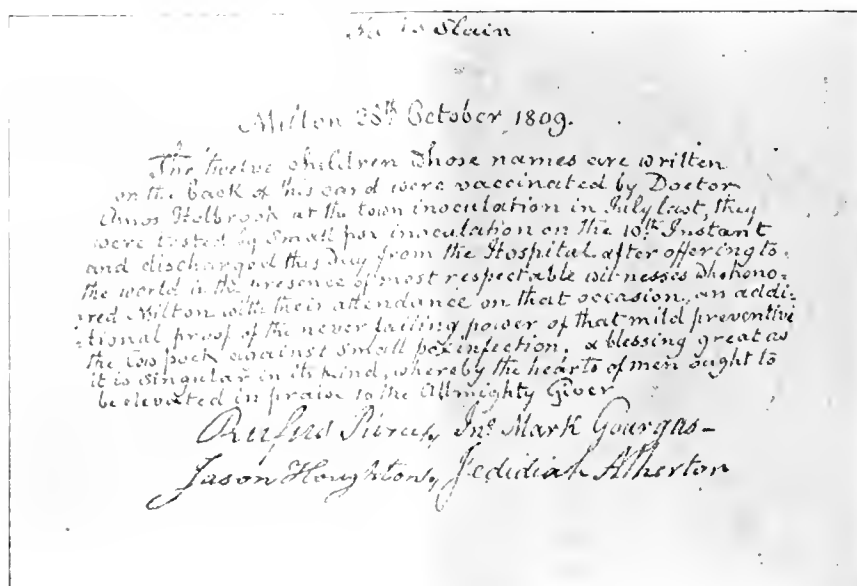 is Slain
Milton 25th October 1809.
The twelve children whose names are written
on the back of this card were vaccinated by Doctor
Amos Holbrook at the town inoculation in July last, they
were tested by small pox inoculation on the 10th Instant
and discharged this day from the Hospital after offering to
the world in the presence of most respectable witnesses who hono=
red Milton with their attendance on that occasion, an addi=
=tional proof of the never failing power of that mild preventive
the Cow pock against small pox infection; a blessing great as
it is singular in its kind, whereby the hearts of men ought to
be elevated in praise to the Allmighty Giver
Rufus Pierce, Jno Mark Gourgas
Jason Houghton, Jedidiah Atherton